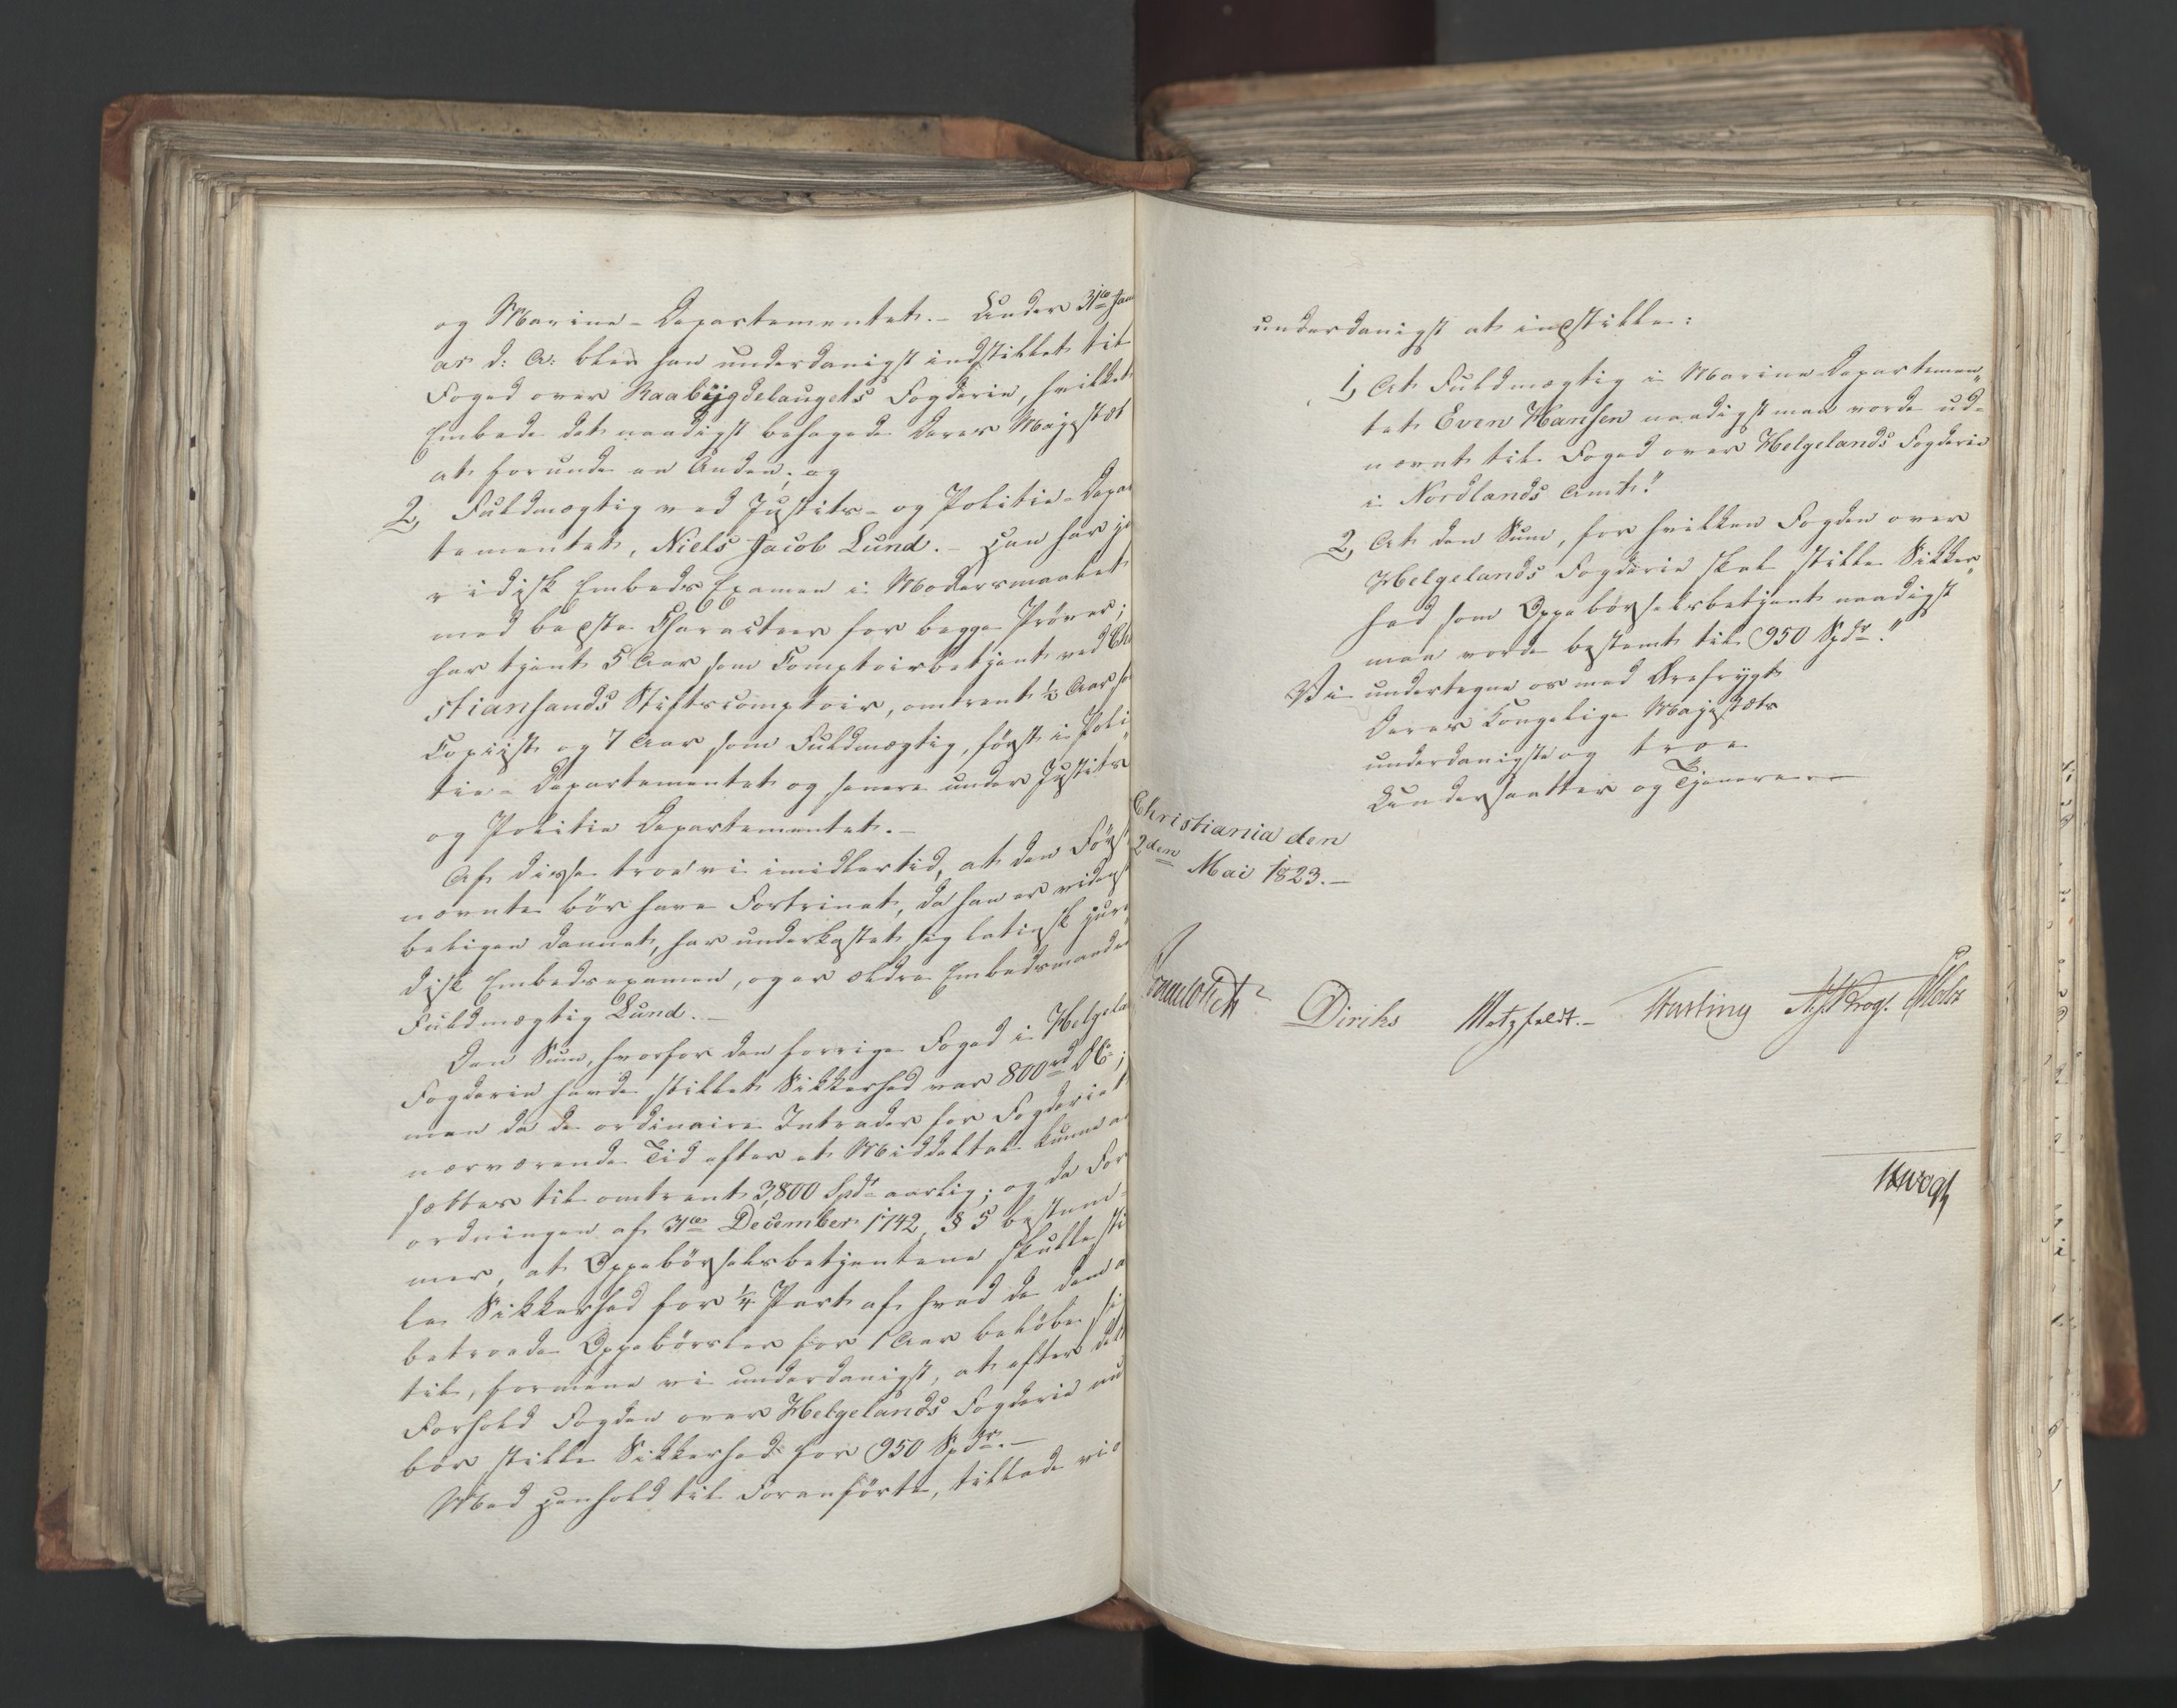 og Marine-Departementet. – Under 31te Janu
ar d: A: blev han underdanigst indstillet til
Foged over Raabÿgdelaugets Fogderie, hvilket
Embede det naadigst behagede Deres Majestæt
at forunde en Anden; og
2, Fuldmægtig ved Justits- og Politie-Depar
tementet, Niels Jacob Lund. – Han har ju
ridisk Embeds Examen i Modersmaalet
med bedste Characteer for begge Prøver;
har tjent 5 Aar som Comptoirbetjent ved Chri
stiansands Stiftscomptoir, omtrent ½ Aar som
Copiist og 7 Aar som Fuldmægtig, først i Poli„
tie-Departementet og senere under Justits
og Politie Departementet. –
Af disse troe vi imidlertid, at den Først
nævnte bør have Fortrinet, da han er vidensk
beligen dannet, har underkastet sig latinsk juri„
disk Embedsexamen, og er ældre Embedsmand end
Fuldmægtig Lund. –
Den Sum, hvorfor den forrige Foged i Helgela
Fogderie havde stillet Sikkerhed var 800rd
men da de ordinaire Intrader for Fogderiet
nærværende Tid efter et Middeltal kunne an
sættes til omtrent 3,800 Spdr aarlig; og da For
ordningen af 31te December 1742, § 5 bestem„
mer, at Oppebørselsbetjentene skulle stil
le Sikkerhed for ¼ Part af hvad de dem
betroede Oppebørsler for 1 Aar beløbe sig
til, formene vi underdanigst, at efter dette
Forhold Fogden over Helgelands Fogderie nu
bør stille Sikkerhed for 950 Spdr. –
Med Henhold til Foranførte, tillade vi os
underdanigst at indstille:
1, At Fuldmægtig i Marine-Departemen„
tet Even Hansen naadigst maa vorde ud-
nævnt til Foged over Helgelands Fogderie
i Nordlands Amt."
2, At den Sum, for hvilken Fogden over
Helgelands Fogderie skal stille Sikker„
hed som Oppebørselsbetjent naadigst
maa vorde bestemt til 950 Spdr."
Vi undertegne os med Ærefrygt
Deres Kongelige Majestæts
underdanigste og troe
Undersaatter og Tjenere. –
Christiania den
2den Mai 1823. –
Diriks Motzfeldt. – Krog.